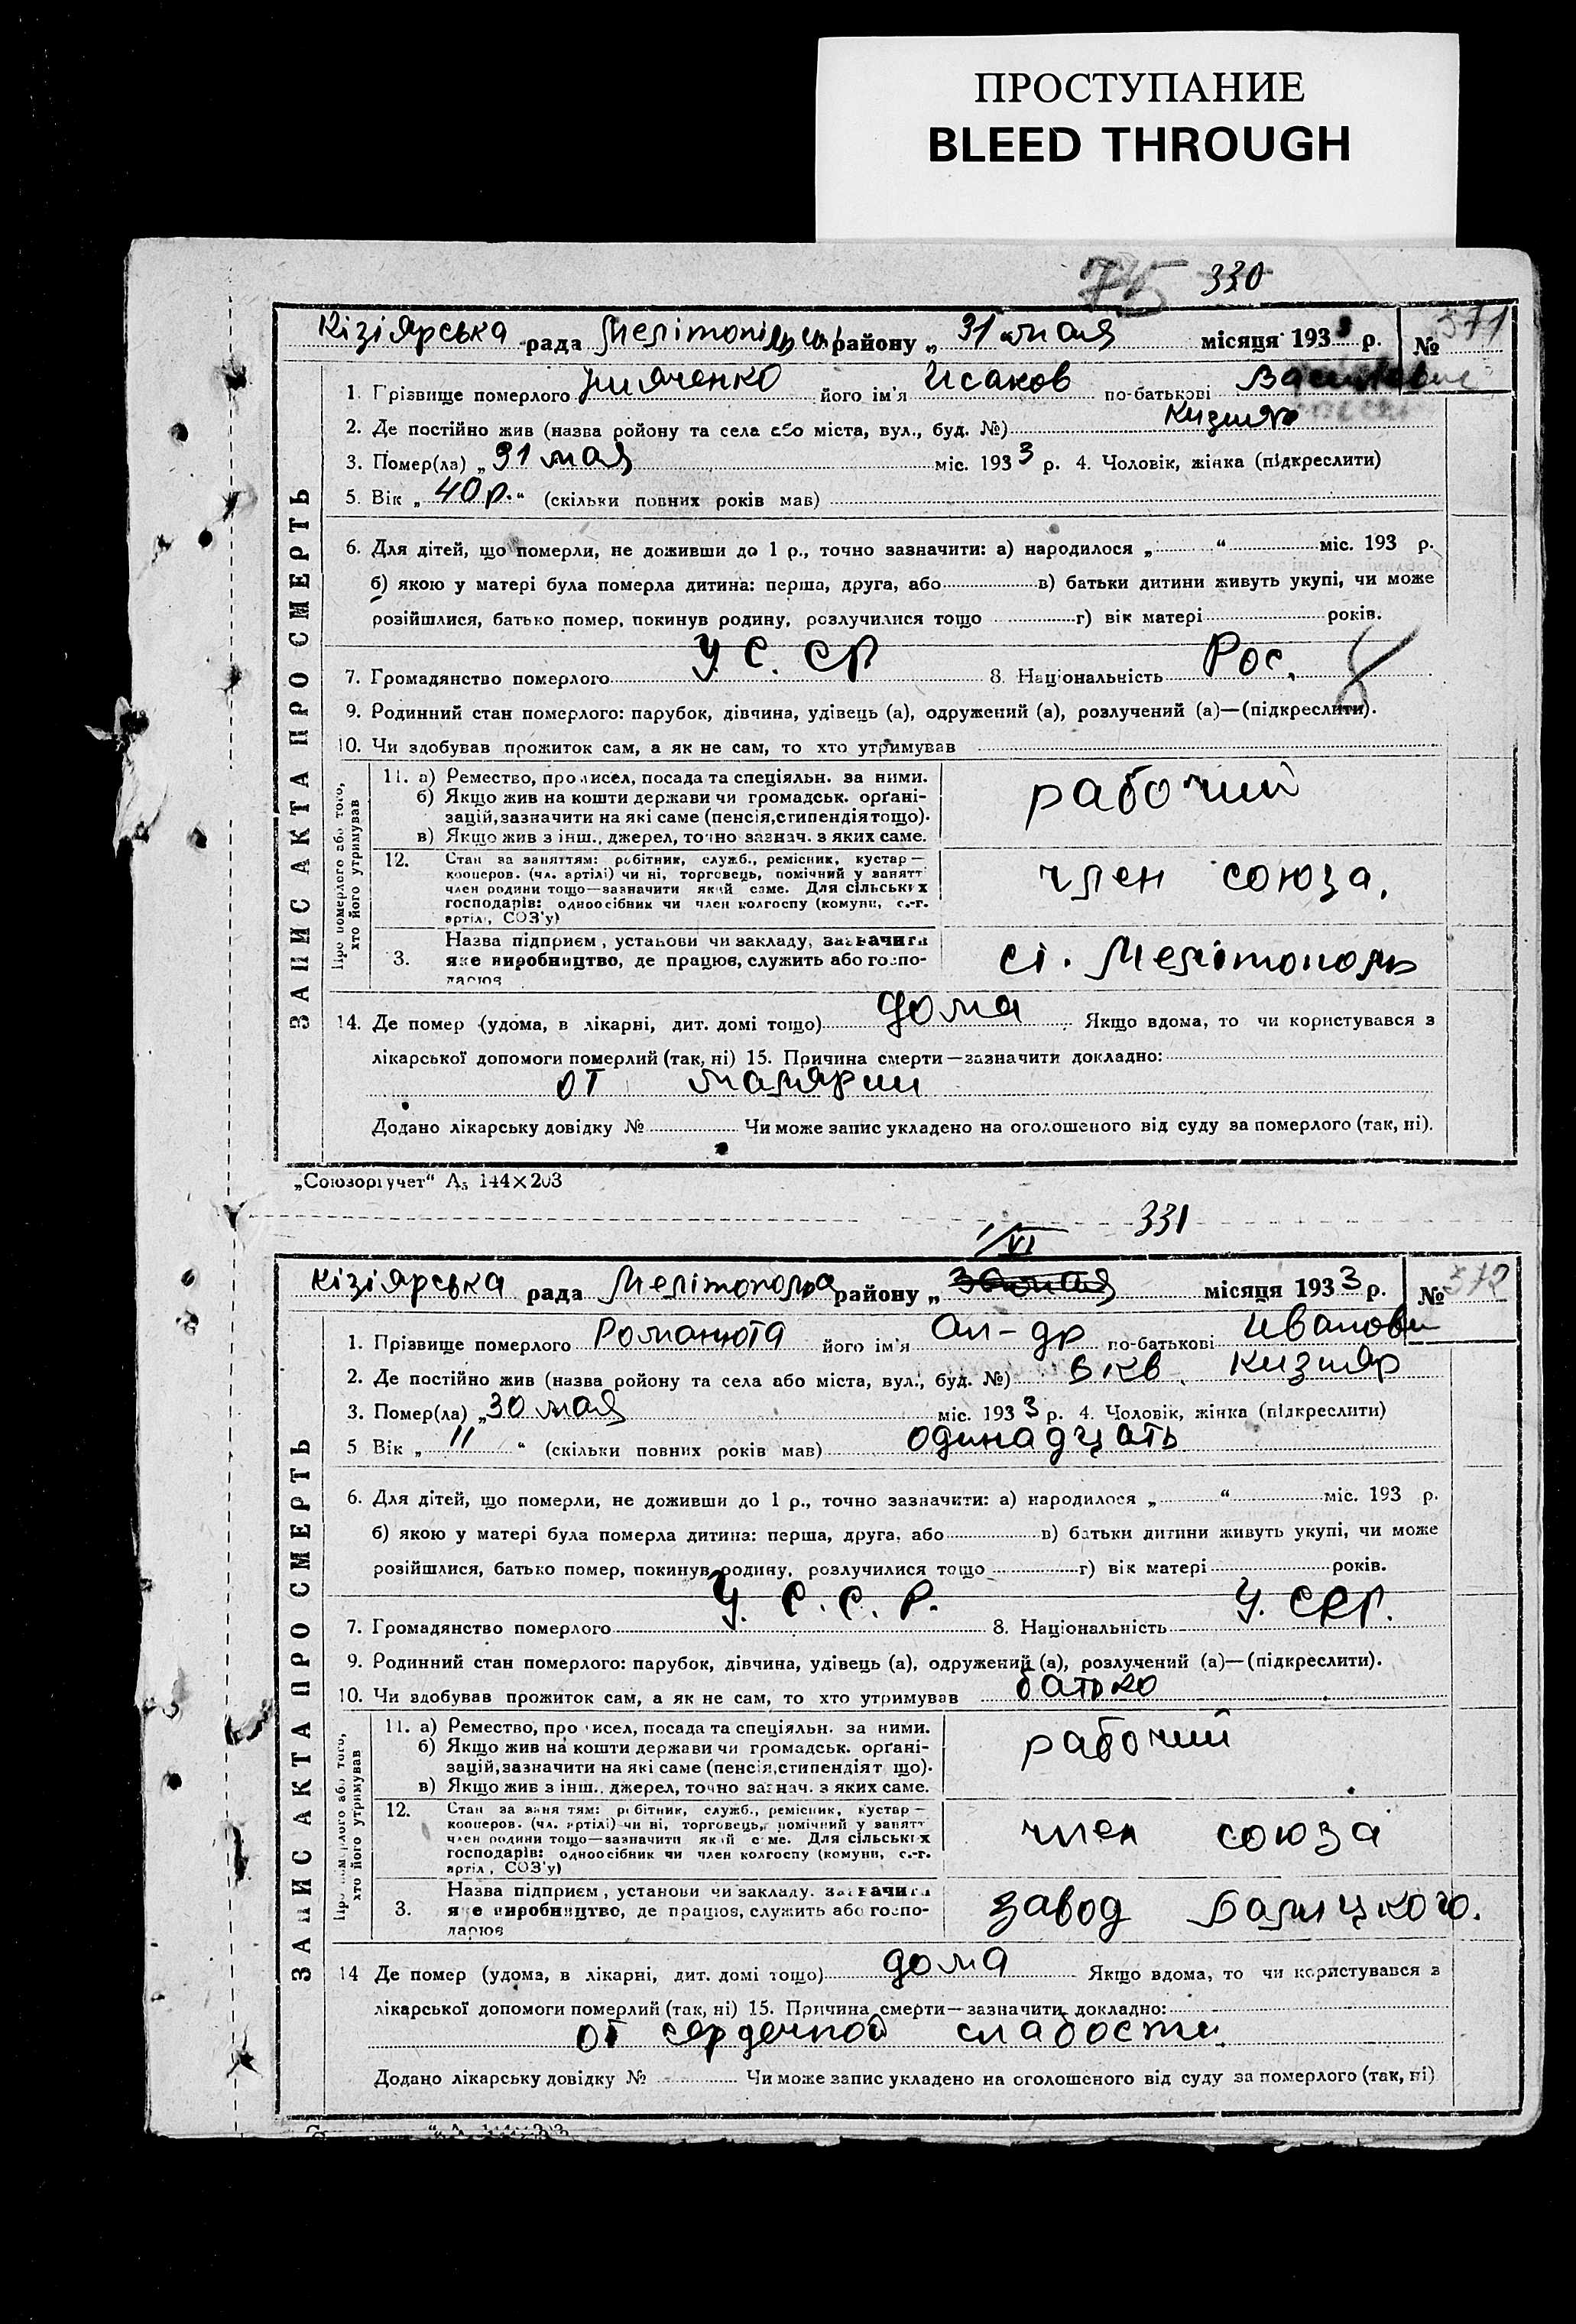 ПРОСТУПАНИЕ
BLEED THROUGH
75 330
Кізіярська рада Мелітопільськ району „ 31 мая місяця 1933 р. № 371
1. Прізвище померлого його ім'я Исаков по-батькові
2. Де постійно жив (назва ройону та села або міста, вул., буд. №) Кизияр
3. Помер(ла) „ 31 мая міс. 1933 р. 4. Чоловік, жінка (підкреслити)
5. Вік „ 40 р. “ (скільки повних років мав)
6. Для дітей, що померли, не доживши до 1 р., точно зазначити: а) народилося „ “ міс. 193 р.
б) якою у матері була померла дитина: перша, друга, або в) батьки дитини живуть укупі, чи може
розійшлися, батько помер, покинув родину, розлучилися тощо г) вік матері років.
7. Громадянство померлого У. С. СР 8. Національність Рос.
9. Родинний стан померлого: парубок, дівчина, удівець (а), одружений (а), розлучений (а)—(підкреслити).
10. Чи здобував прожиток сам, а як не сам, то хто утримував
ЗАПИС АКТА ПРО СМЕРТЬ
Про померлого або того, хто його утримував
11. а) Ремество, промисел, посада та спеціяльн. за ними.
б) Якщо жив на кошти держави чи громадськ. орґані-
зацій, зазначити на які саме (пенсія, стипендія тощо).
в) Якщо жив з інш., джерел, точно зазнач. з яких саме.
рабочий
12. Стан за заняттям: робітник, служб., ремісник, кустар—
кооперов. (чл. артілі) чи ні, торговець, помічний у занятт
член родини тощо—зазначити який саме. Для сільських
господарів: одноосібник чи член колгоспу (комуни, с.-г.
артілі, СОЗ'у)
член союза.
3. Назва підприєм, установи чи закладу, зазначити
яке виробництво, де працює, служить або госпо-
дарює
ст. Мелітополь
14. Де помер (удома, в лікарні, дит. домі тощо) дома Якщо вдома, то чи користувався з
лікарської допомоги померлий (так, ні) 15. Причина смерти—зазначити докладно:
от малярии
Додано лікарську довідку № Чи може запис укладено на оголошеного від суду за померлого (так, ні).
„Союзоргучет“ А₅ 144×203
331
1/VI
Кізіярська рада Мелітопольа району „ 30 мая місяця 1933 р. № 372
1. Прізвище померлого Романюта його ім'я Ал-др по-батькові Иванови
2. Де постійно жив (назва ройону та села або міста, вул., буд. №) 6 кв. Кизияр
3. Помер(ла) „ 30 мая міс. 1933 р. 4. Чоловік, жінка (підкреслити)
5 Вік „ 11 “ (скільки повних років мав) одинадцать
6. Для дітей, що померли, не доживши до 1 р., точно зазначити: а) народилося „ “ міс. 193 р.
б) якою у матері була померла дитина: перша, друга, або в) батьки дитини живуть укупі, чи може
розійшлися, батько помер, покинув родину, розлучилися тощо г) вік матері років.
7. Громадянство померлого У. С. С. Р. 8. Національність У. ССР.
9. Родинний стан померлого: парубок, дівчина, удівець (а), одружений (а), розлучений (а)—(підкреслити).
10. Чи здобував прожиток сам, а як не сам, то хто утримував батько
ЗАПИС АКТА ПРО СМЕРТЬ
Про померлого або того, хто його утримував
11. а) Ремество, промисел, посада та спеціяльн. за ними.
б) Якщо жив на кошти держави чи громадськ. орґані-
зацій, зазначити на які саме (пенсія, стипендія тощо).
в) Якщо жив з інш., джерел, точно зазнач. з яких саме.
рабочий
12. Стан за заняттям: робітник, служб., ремісник, кустар—
кооперов. (чл. артілі) чи ні, торговець, помічний у занятт
член родини тощо—зазначити який саме. Для сільських
господарів: одноосібник чи член колгоспу (комуни, с.-г.
артіл, СОЗ'у)
член союза
3. Назва підприєм, установи чи закладу, зазначити
яке виробництво, де працює, служить або госпо-
дарює
завод Балицкого.
14 Де помер (удома, в лікарні, дит. домі тощо) дома Якщо вдома, то чи користувався з
лікарської допомоги померлий (так, ні) 15. Причина смерти—зазначити докладно:
от сердечной слабости
Додано лікарську довідку № Чи може запис укладено на оголошеного від суду за померлого (так, ні)